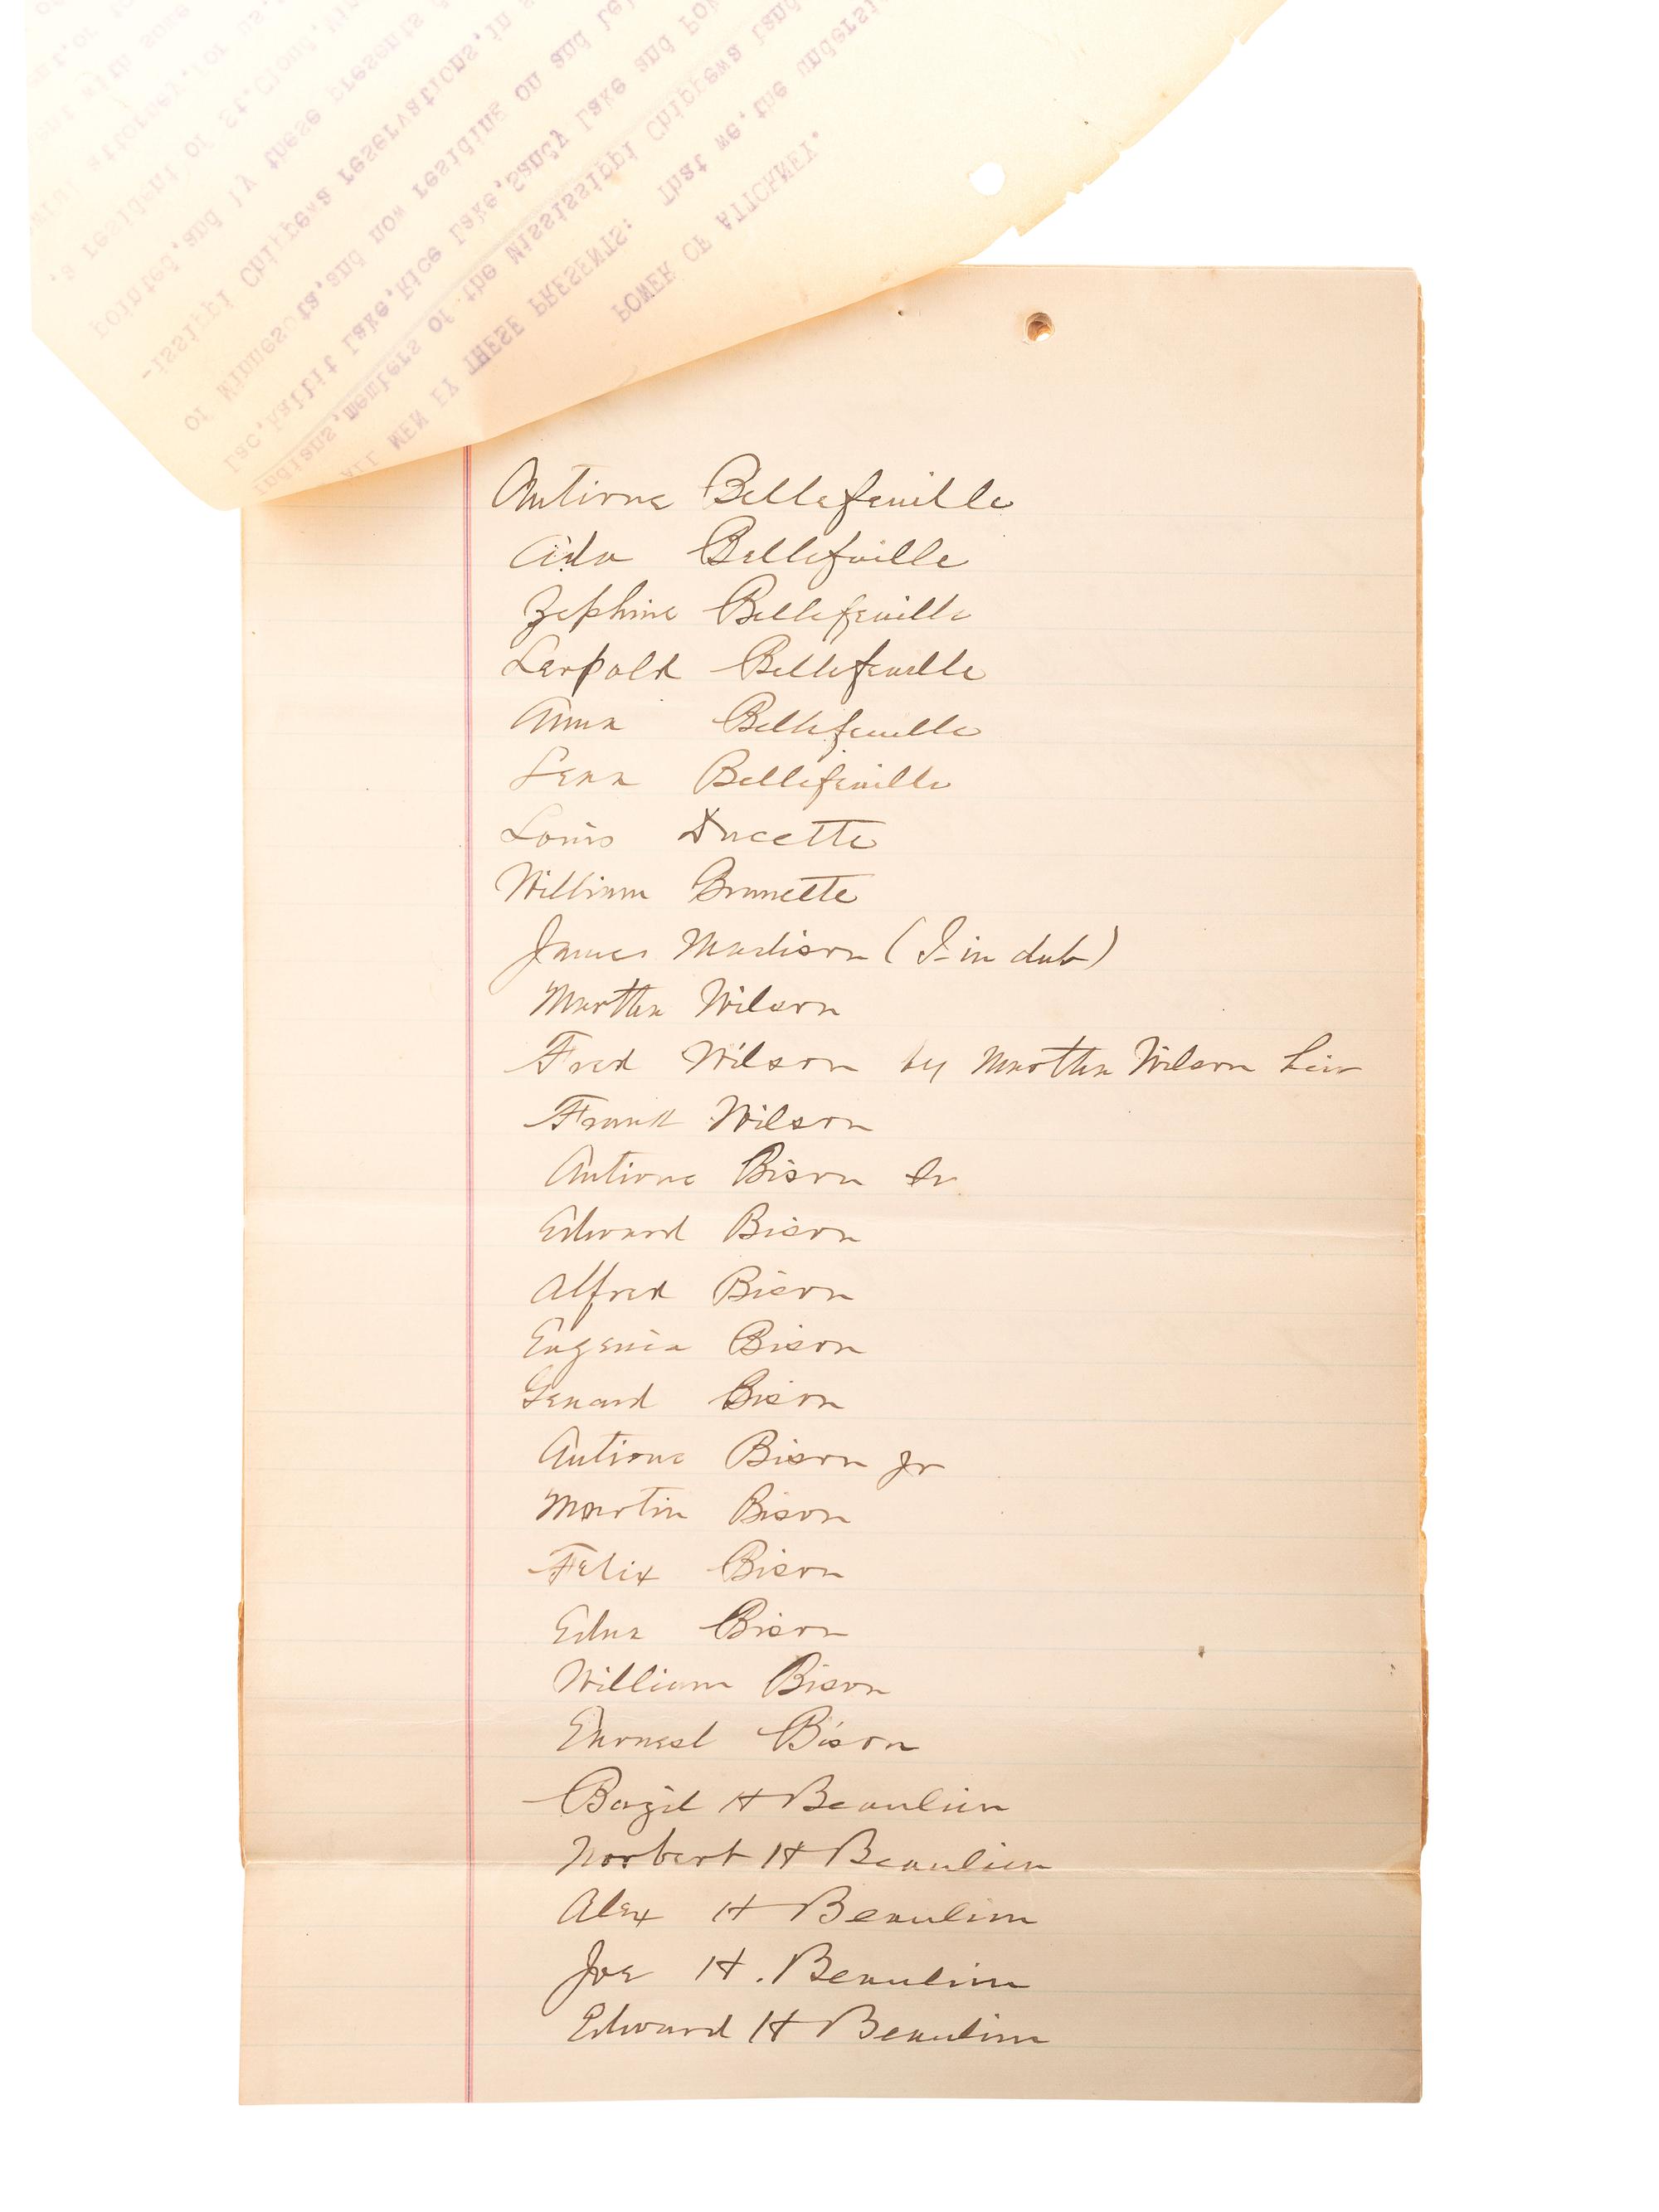 POWER OF ATTORNEY.
ALL MEN BY THESE PRESENTS: That we, the undersi
Indians, members of the Mississippi Chippewa band
Lac, Rabbit Lake, Rice Lake, Sandy Lake and Pok
of Minnesota, and now residing on and
-issippi Chippewa reservations, in
pointed, and by these presents
, a resident of St. Cloud,
attorney, for us,
with some
Antione Bellefeuille
Ada Bellefuille
Zephine Bellefeuille
Leopold Bellefeuille
Anna Bellefeuille
Lena Bellefeuille
Louis Ducette
William Brunette
James Madison (I-in dub)
Martha Wilson
Fred Wilson by Martha Wilson
Frank Wilson
Antione Bison Sr
Edward Bison
Alfred Bison
Eugenia Bison
Genard Bison
Antione Bison Jr
Martin Bison
Felix Bison
Edna Bison
William Bison
Earnest Bison
Bazil H Beaulieu
Norbert H Beaulieu
Alex H Beaulieu
Joe H. Beaulieu
Edward H Beaulieu